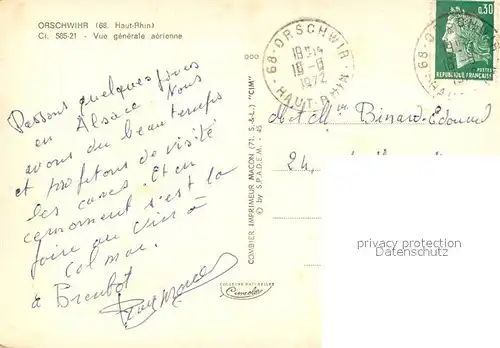 ORSCHWIHR (68. Haut-Rhin)
Ci. 565-21 - Vue générale aérienne
Passons quelques jours
en Alsace. Nous
avons du beau temps
et profitons de visiter
les caves. Et en
ce moment c'est la
foire au vin à
Colmar.
à Bientot
COMBIER IMPRIMEUR MACON (71. S.&L.) "CIM"
© by S.P.A.D.E.M.
COULEURS NATURELLES
68 - ORSCHWIR
1972
HAUT-RHIN
68 - ORSCHWIR
0,30
POSTES
REPUBLIQUE FRANÇAISE
M et Mme Binard-Edouard
24,
privacy protection
Datenschutz